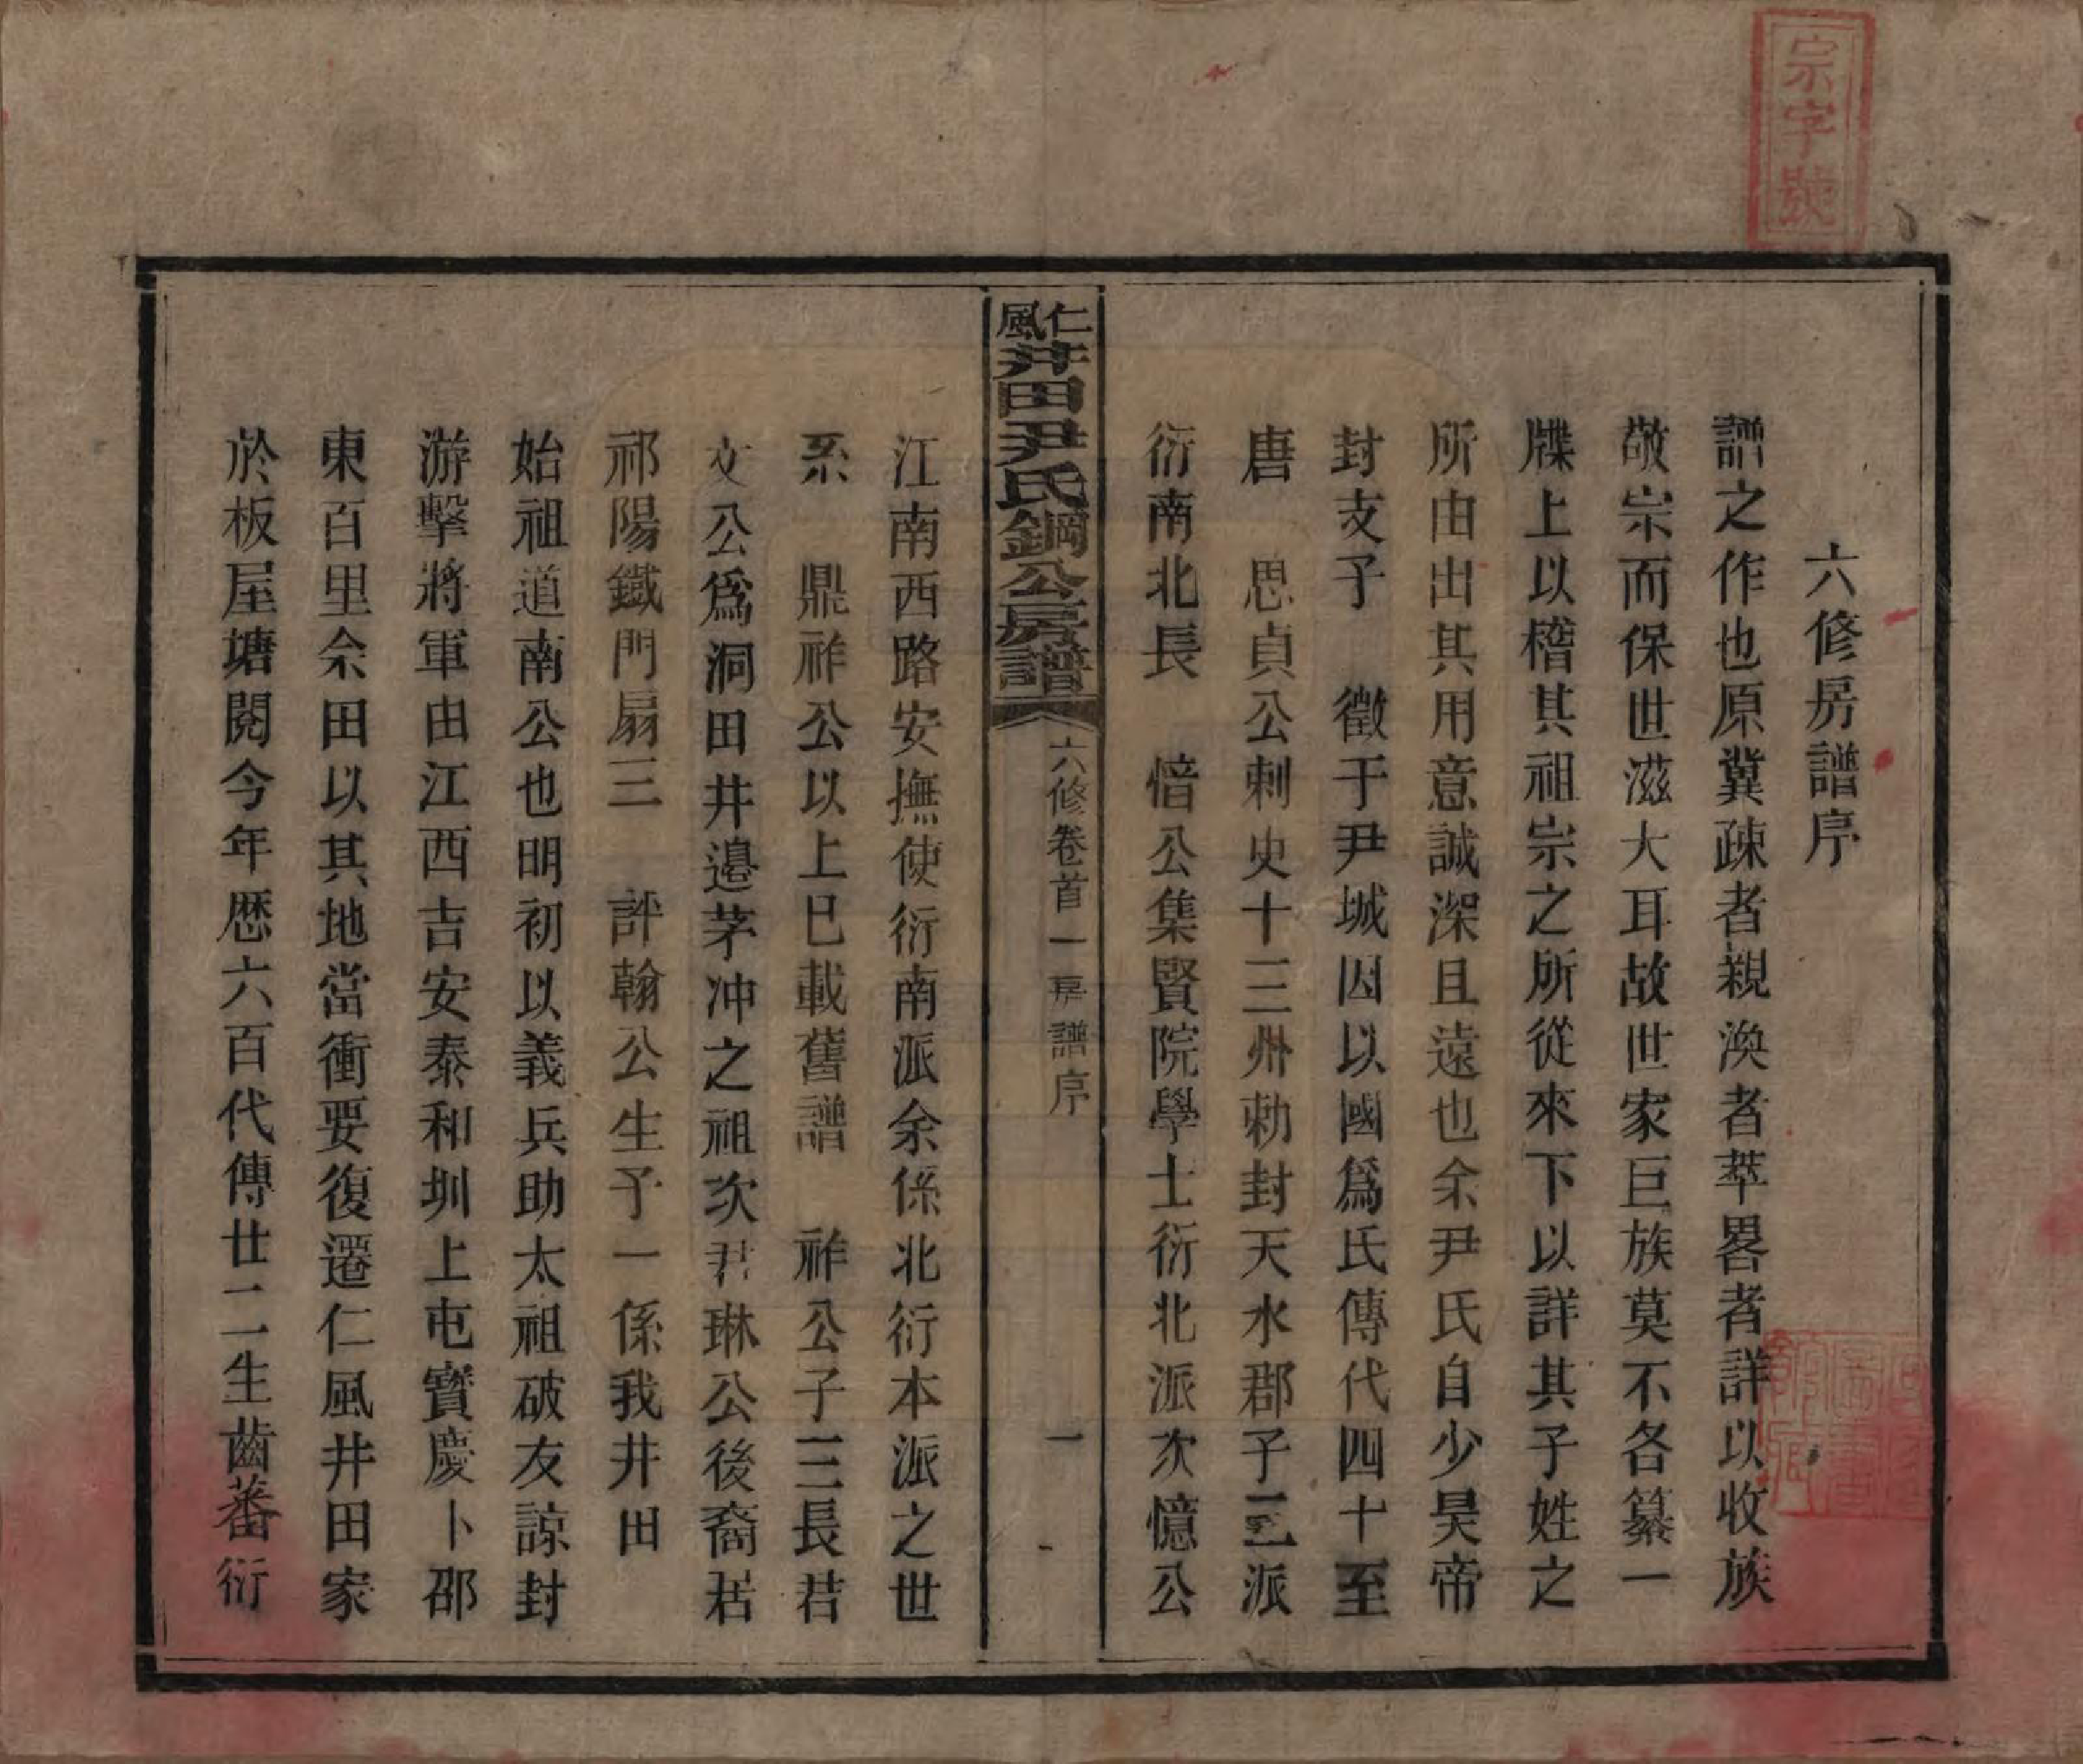 宗字號
六修房譜序
譜之作也原冀疎者親渙者萃畧者詳以收族
敬宗而保世滋大耳故世家巨族莫不各纂一
牒上以稽其祖宗之所從來下以詳其子姓之
所由出其用意誠深且遠也余尹氏自少昊帝
封支子 徵于尹城因以國爲氏傳代四十至
唐 思貞公刺史十三州勅封天水郡子三派
衍南北長 愔公集賢院學士衍北派次憶公
仁風井田尹氏鋼公房譜 六修卷首一房譜序 一
江南西路安撫使衍南派余係北衍本派之世
系 鼎祚公以上已載舊譜 祚公子三長君
文公爲洞田井邉茅冲之祖次君琳公後裔居
祁陽鐵門扇三 評翰公生予一係我井田
始祖道南公也明初以義兵助太祖破友諒封
游擊將軍由江西吉安泰和圳上屯寶慶卜邵
東百里余田以其地當衝要復遷仁風井田家
於板屋塘閱今年歴六百代傳廿二生齒蕃衍